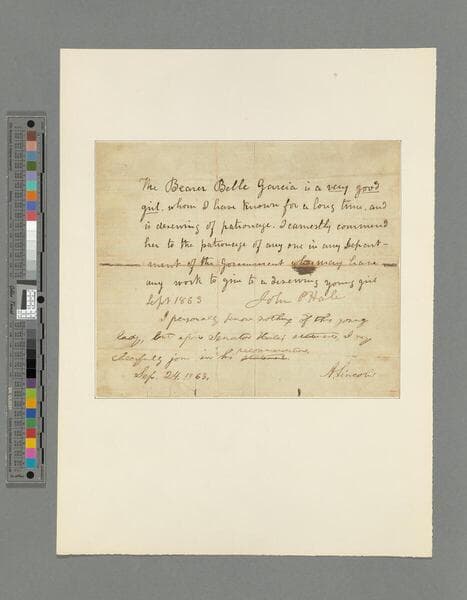 The Bearer Belle Garcia is a very good
girl. whom I have known for a long time. and
is deserving of patronage. I earnestly commend
her to the patronage of any one in any Depart-
ment of the Government who may have
any work to give to a deserving young girl
Sept 1863 John P Hale
I personally know nothing of this young
lady, but upon Senator Hale's statement I very
cheerfully join in his recommendation
statement.
Sep. 24. 1863. A. Lincoln